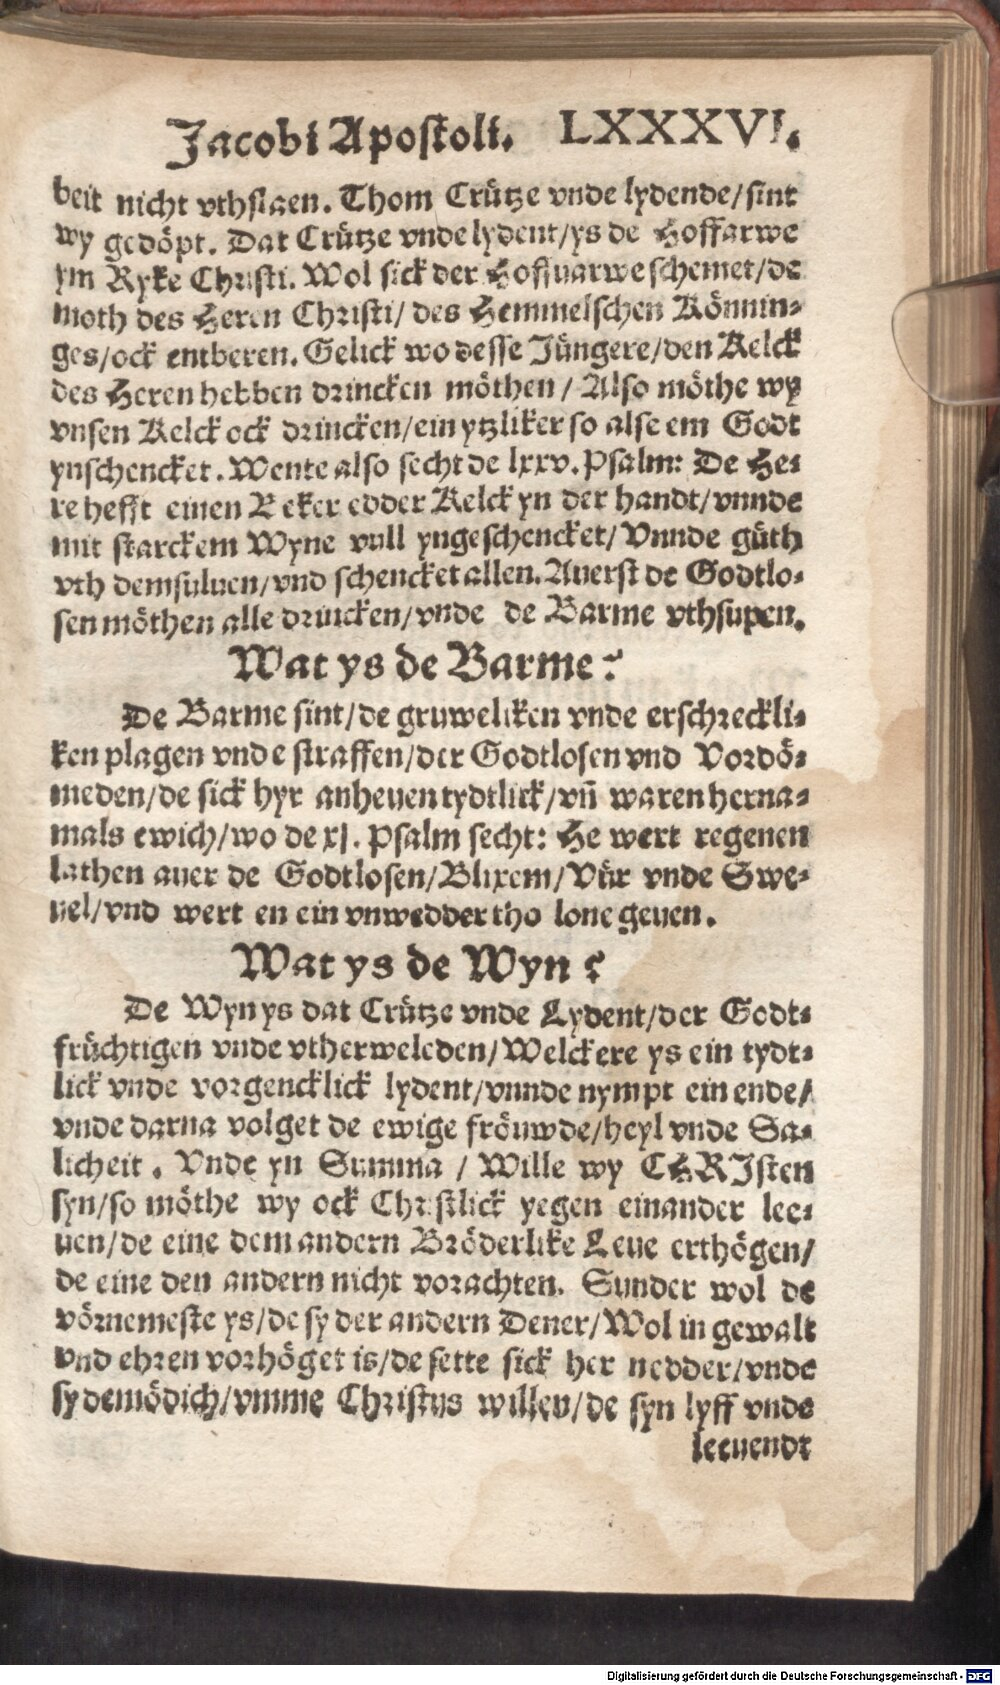 Jacobi Apostoli. LXXXVI.
beit nicht vthslaen. Thom Crütze vnde lydende/sint
wy gedöpt. Dat Crütze vnde lydent/ys de Hoffarwe
ym Ryke Christi. Wol sick der Hoffuarwe schemet/de
moth des Heren Christi/ des Hemmelschen Könnin-
ges/ock entberen. Gelick wo desse Jüngere/den Kelck
des Heren hebben drincken möthen/ Also möthe wy
vnsen Kelck ock drincken/ein ytzliker so alse em Godt
ynschencket. Wente also secht de lxxv. Psalm: De He-
re hefft einen Beker edder Kelck yn der handt/vnnde
mit starckem Wyne vull yngeschencket/ Vnnde güth
vth demsuluen/vnd schencket allen. Auerst de Godtlo-
sen möthen alle drincken/vnde de Barme vthsupen.
Wat ys de Barme?
De Barme sint/de gruweliken vnde erschreckli-
ken plagen vnde straffen/der Godtlosen vnd Vordö-
meden/de sick hyr anheuen tydtlick/vñ waren herna-
mals ewich/wo de xj. Psalm secht: He wert regenen
lathen auer de Godtlosen/Blixem/Vür vnde Swe-
uel/vnd wert en ein vnwedder tho lone geuen.
Wat ys de Wyn?
De Wyn ys dat Crütze vnde Lydent/der Godt-
früchtigen vnde vtherweleden/Welckere ys ein tydt-
lick vnde vorgencklick lydent/vnnde nympt ein ende/
vnde darna volget de ewige fröuwde/heyl vnde Sa-
licheit. Vnde yn Summa / Wille wy CHRJsten
syn/so möthe wy ock Christlick yegen einander lee-
uen/de eine dem andern Bröderlike Leue erthögen/
de eine den andern nicht vorachten. Sunder wol de
vörnemeste ys/de sy der andern Dener/Wol in gewalt
vnd ehren vorhöget is/de sette sick her nedder/vnde
sy demödich/vmme Christus willen/de syn lyff vnde
leeuendt
Digitalisierung gefördert durch die Deutsche Forschungsgemeinschaft - DFG